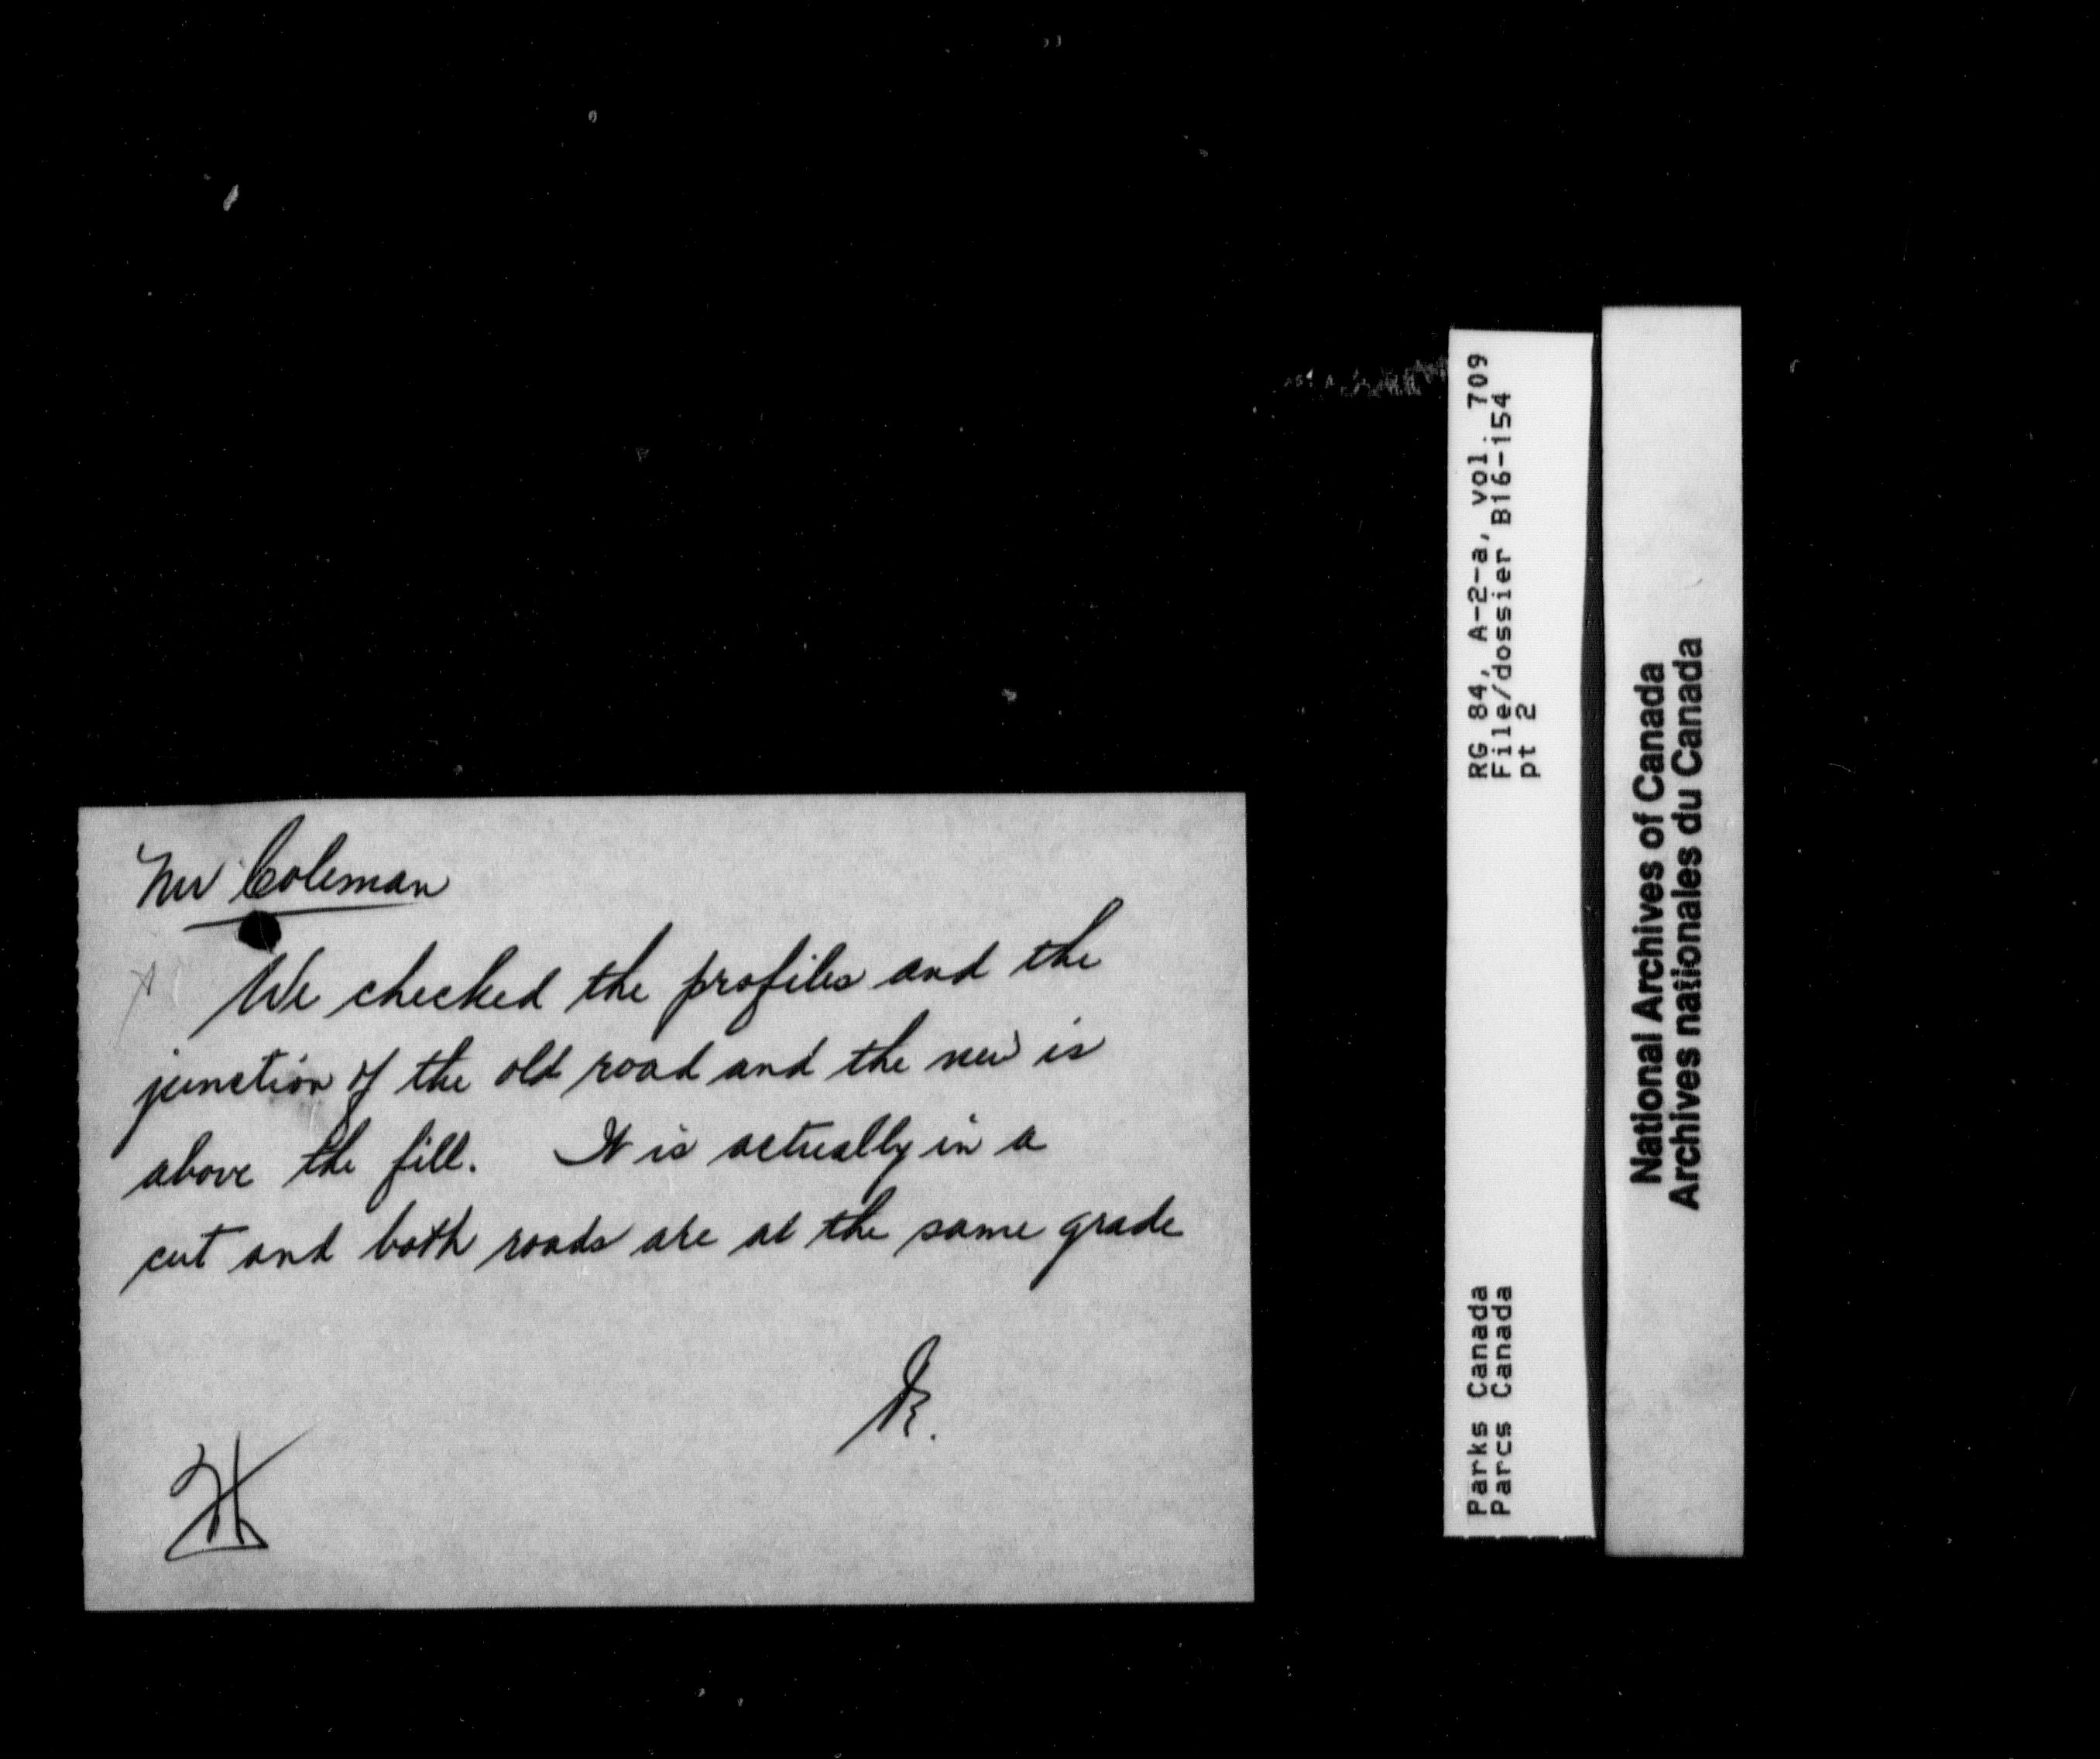 Mr Coleman
We checked the profiles and the
junction of the old road and the new is
above the fill. It is actually in a
cut and both roads are at the same grade
RG 84, A-2-a, vol. 709
File/dossier B16-154
pt 2
Parks Canada
Parcs Canada
National Archives of Canada
Archives nationales du Canada